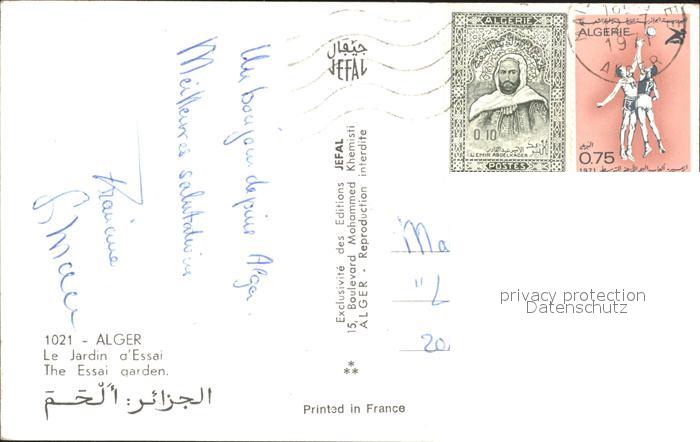 Un bonjour depuis Alger.
Meilleures salutations
1021 - ALGER
Le Jardin d'Essai
The Essai garden.
الجزائر: الحمة
جيفال
JEFAL
Exclusivité des Editions JEFAL
15, Boulevard Mohammed Khemisti
ALGER - Reproduction interdite
Printed in France
ALGERIE
0,10
L'EMIR ABDELKADER
POSTES
ALGERIE
1971
ALGER
0,75
البريد
1971
Ma
"L
20
privacy protection
Datenschutz